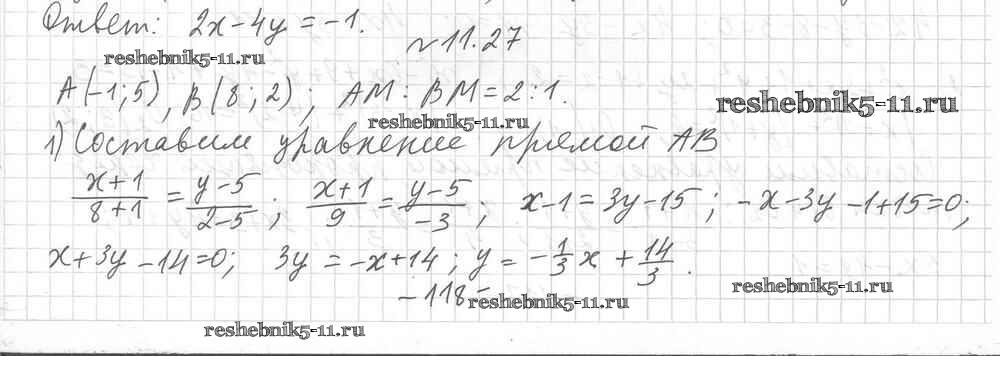 Ответ: 2x-4y=-1.
№11.27
reshebnik5-11.ru
A(-1;5), B(8;2); AM:BM=2:1.
reshebnik5-11.ru
reshebnik5-11.ru
1) Составим уравнение прямой AB
(x+1)/(8+1) = (y-5)/(2-5); (x+1)/9 = (y-5)/(-3); x-1=3y-15; -x-3y-1+15=0;
x+3y-14=0; 3y=-x+14; y=-1/3x+14/3.
reshebnik5-11.ru
-118-
reshebnik5-11.ru
reshebnik5-11.ru